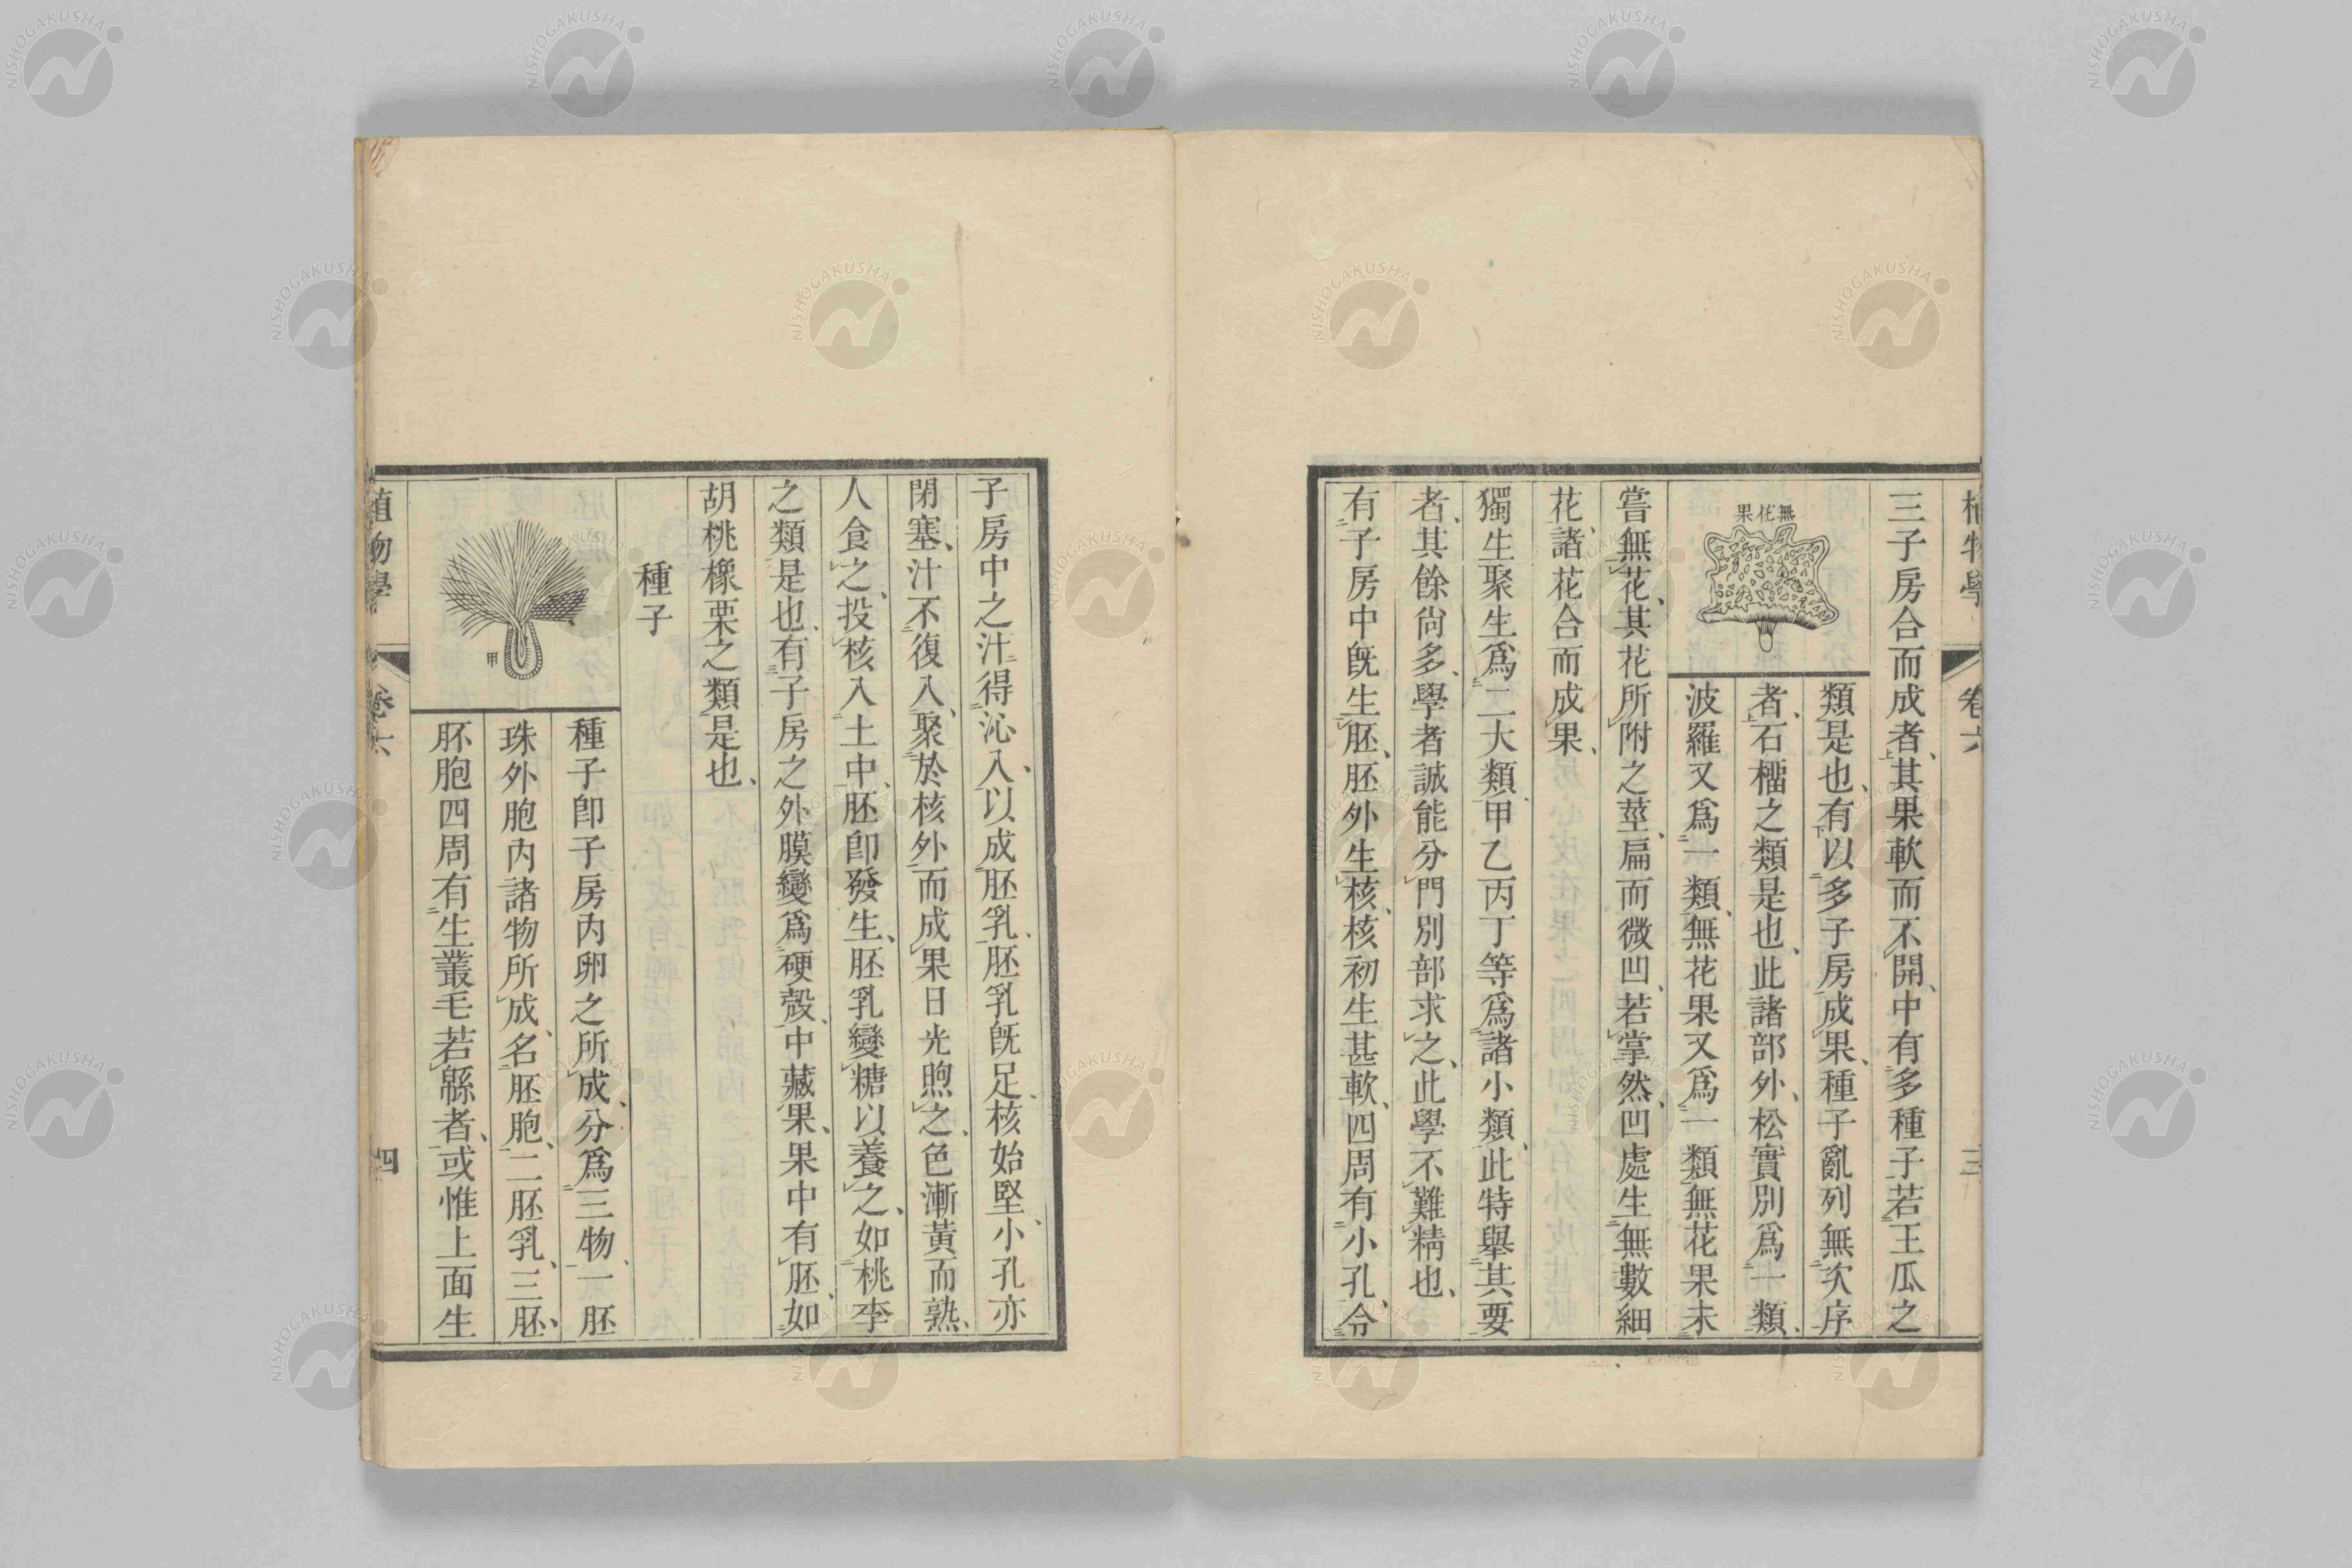 植物學 卷六 三
三子房合而成者、其果軟而不開、中有多種子若王瓜之
無花果
類是也、有以多子房成果、種子亂列無次序
者、石橊之類是也、此諸部外、松實別爲一類、
波羅又爲一類、無花果又爲一類無花果未
嘗無花、其花所附之莖、扁而微凹、若掌然、凹處生無數細
花、諸花合而成果、
獨生聚生爲二大類、甲乙丙丁等爲諸小類、此特舉其要
者、其餘尙多、學者誠能分門別部求之、此學不難精也、
有子房中旣生胚、胚外生核、核初生甚軟、四周有小孔、令
子房中之汁得沁入、以成胚乳、胚乳旣足、核始堅、小孔亦
閉塞、汁不復入、聚於核外而成果日光煦之、色漸黃而熟、
人食之、投核入土中、胚卽發生、胚乳變糖以養之、如桃李
之類是也、有子房之外膜變爲硬殼、中藏果、果中有胚、如
胡桃橡栗之類是也、
種子
甲
種子卽子房內卵之所成、分爲三物、一胚
珠外胞內諸物所成、名胚胞、二胚乳、三胚、
胚胞四周有生叢毛若緜者、或惟上面生
植物學 卷六 四
NISHOGAKUSHA